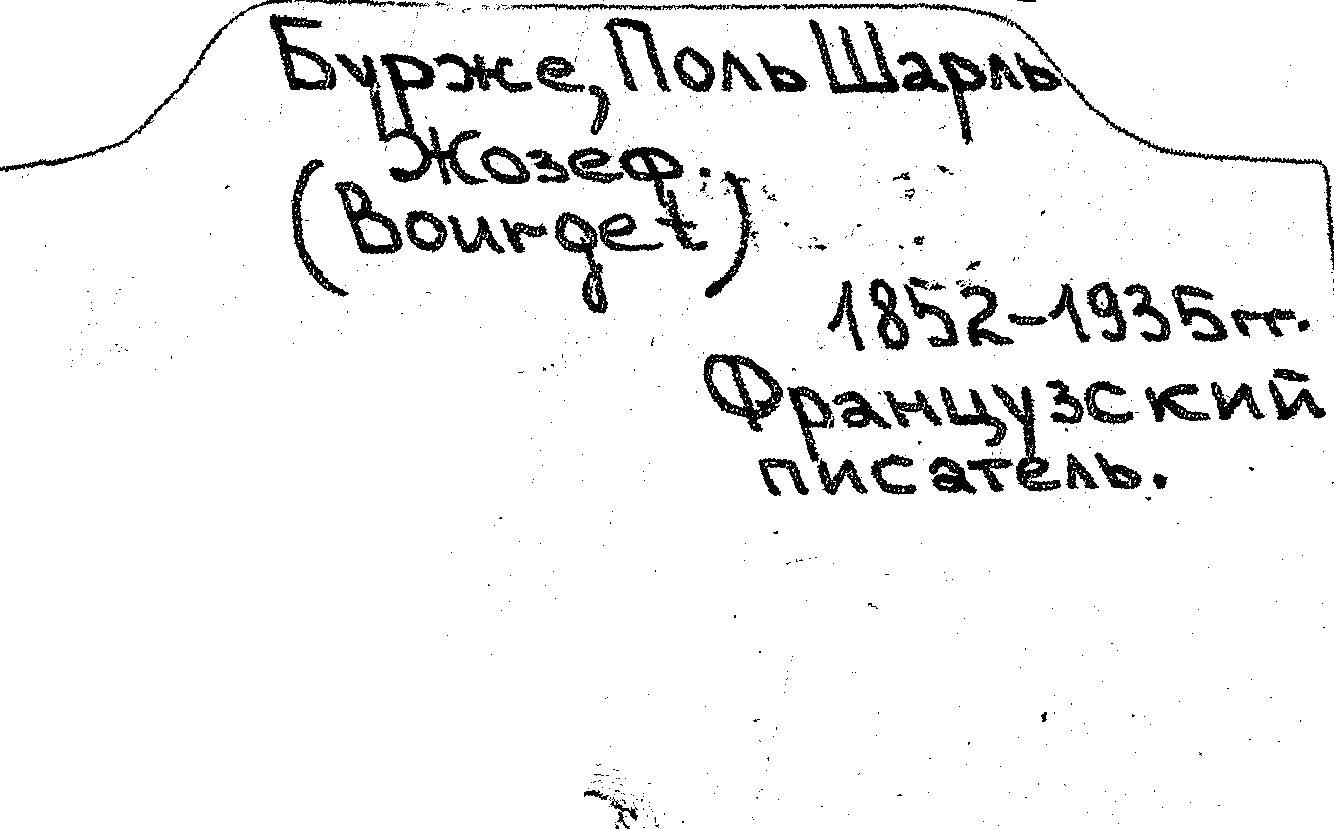 Бурже, Поль Шарль
Жозеф.
(Bourget)
1852-1935гг.
Французский
писатель.